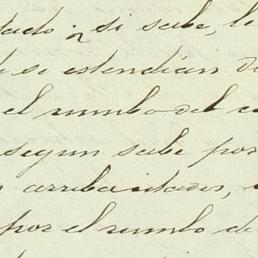 tado; si sabe, le
se estendian de
el rumbo del c
segun sabe por
arriba citados,
por el rumbo de